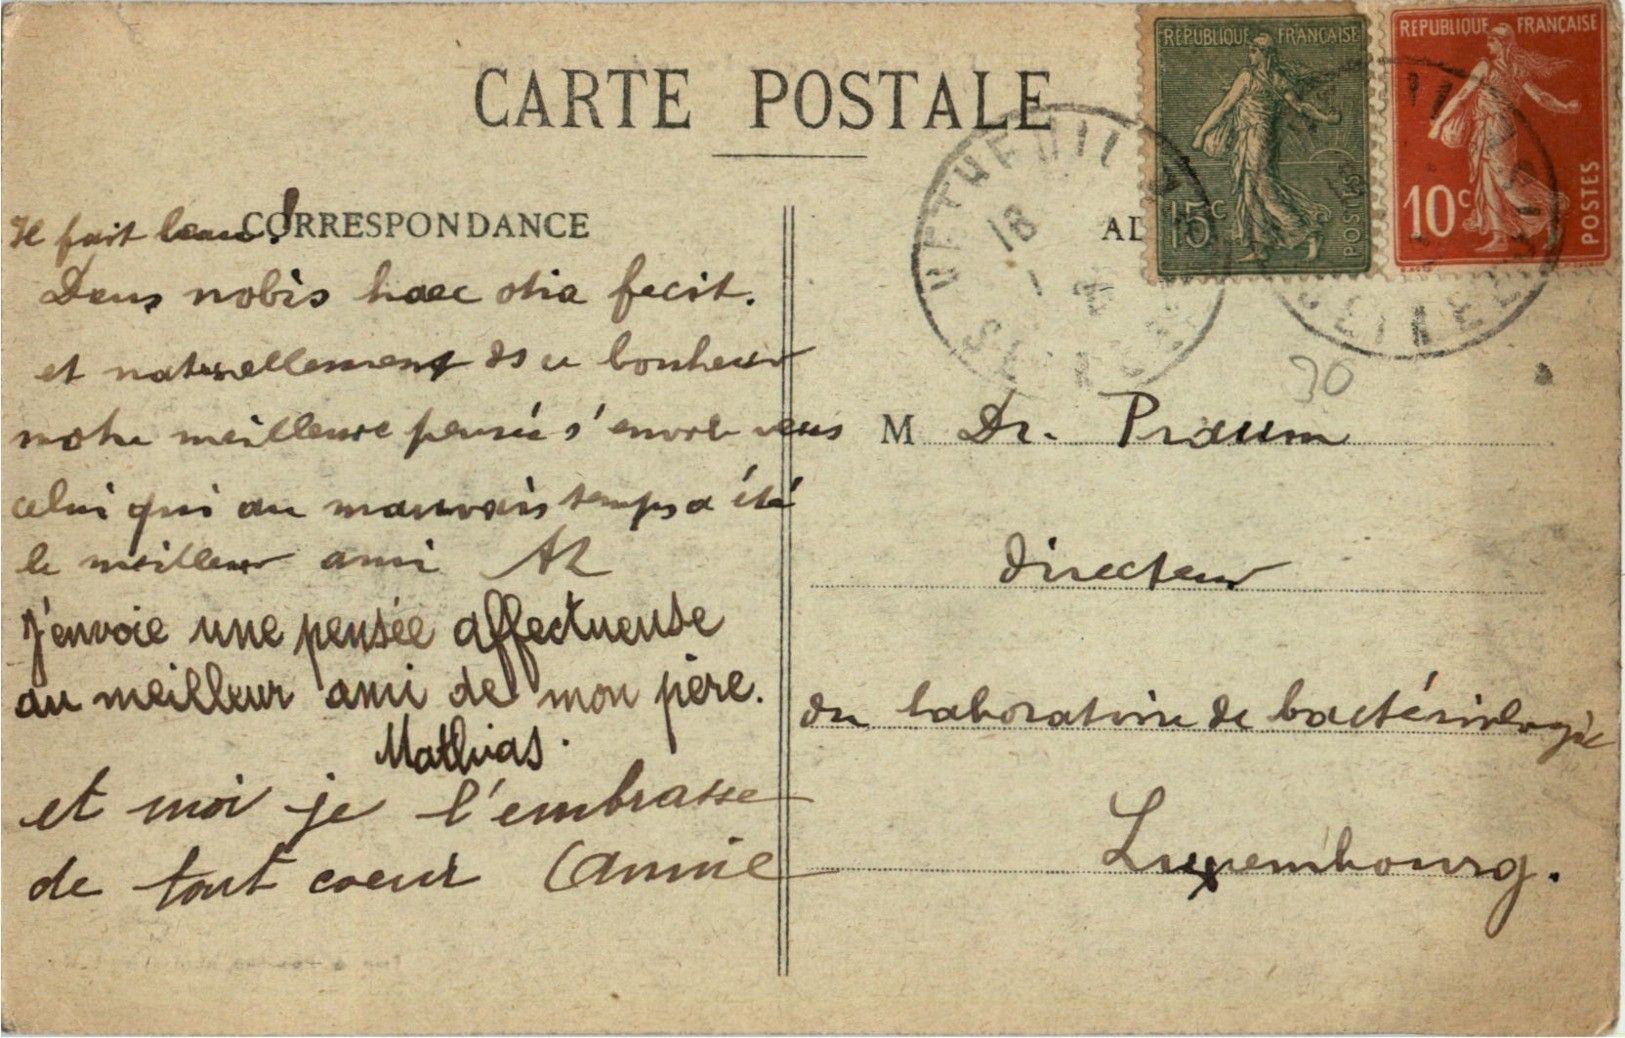 CARTE POSTALE
RÉPUBLIQUE FRANÇAISE
15c
POSTES
RÉPUBLIQUE FRANÇAISE
10c
POSTES
VETHEUIL
18
CORRESPONDANCE
Il fait beau!
Deus nobis haec otia fecit.
et naturellement ds ce bonheur
notre meilleure pensée s'envole vers
celui qui au mauvais temps a été
le meilleur ami
J'envoie une pensée affectueuse
au meilleur ami de mon père.
Mathias.
et moi je l'embrasse
de tout coeur Annie
30
M Dr. Praum
directeur
du laboratoire de bactériologie
Luxembourg.